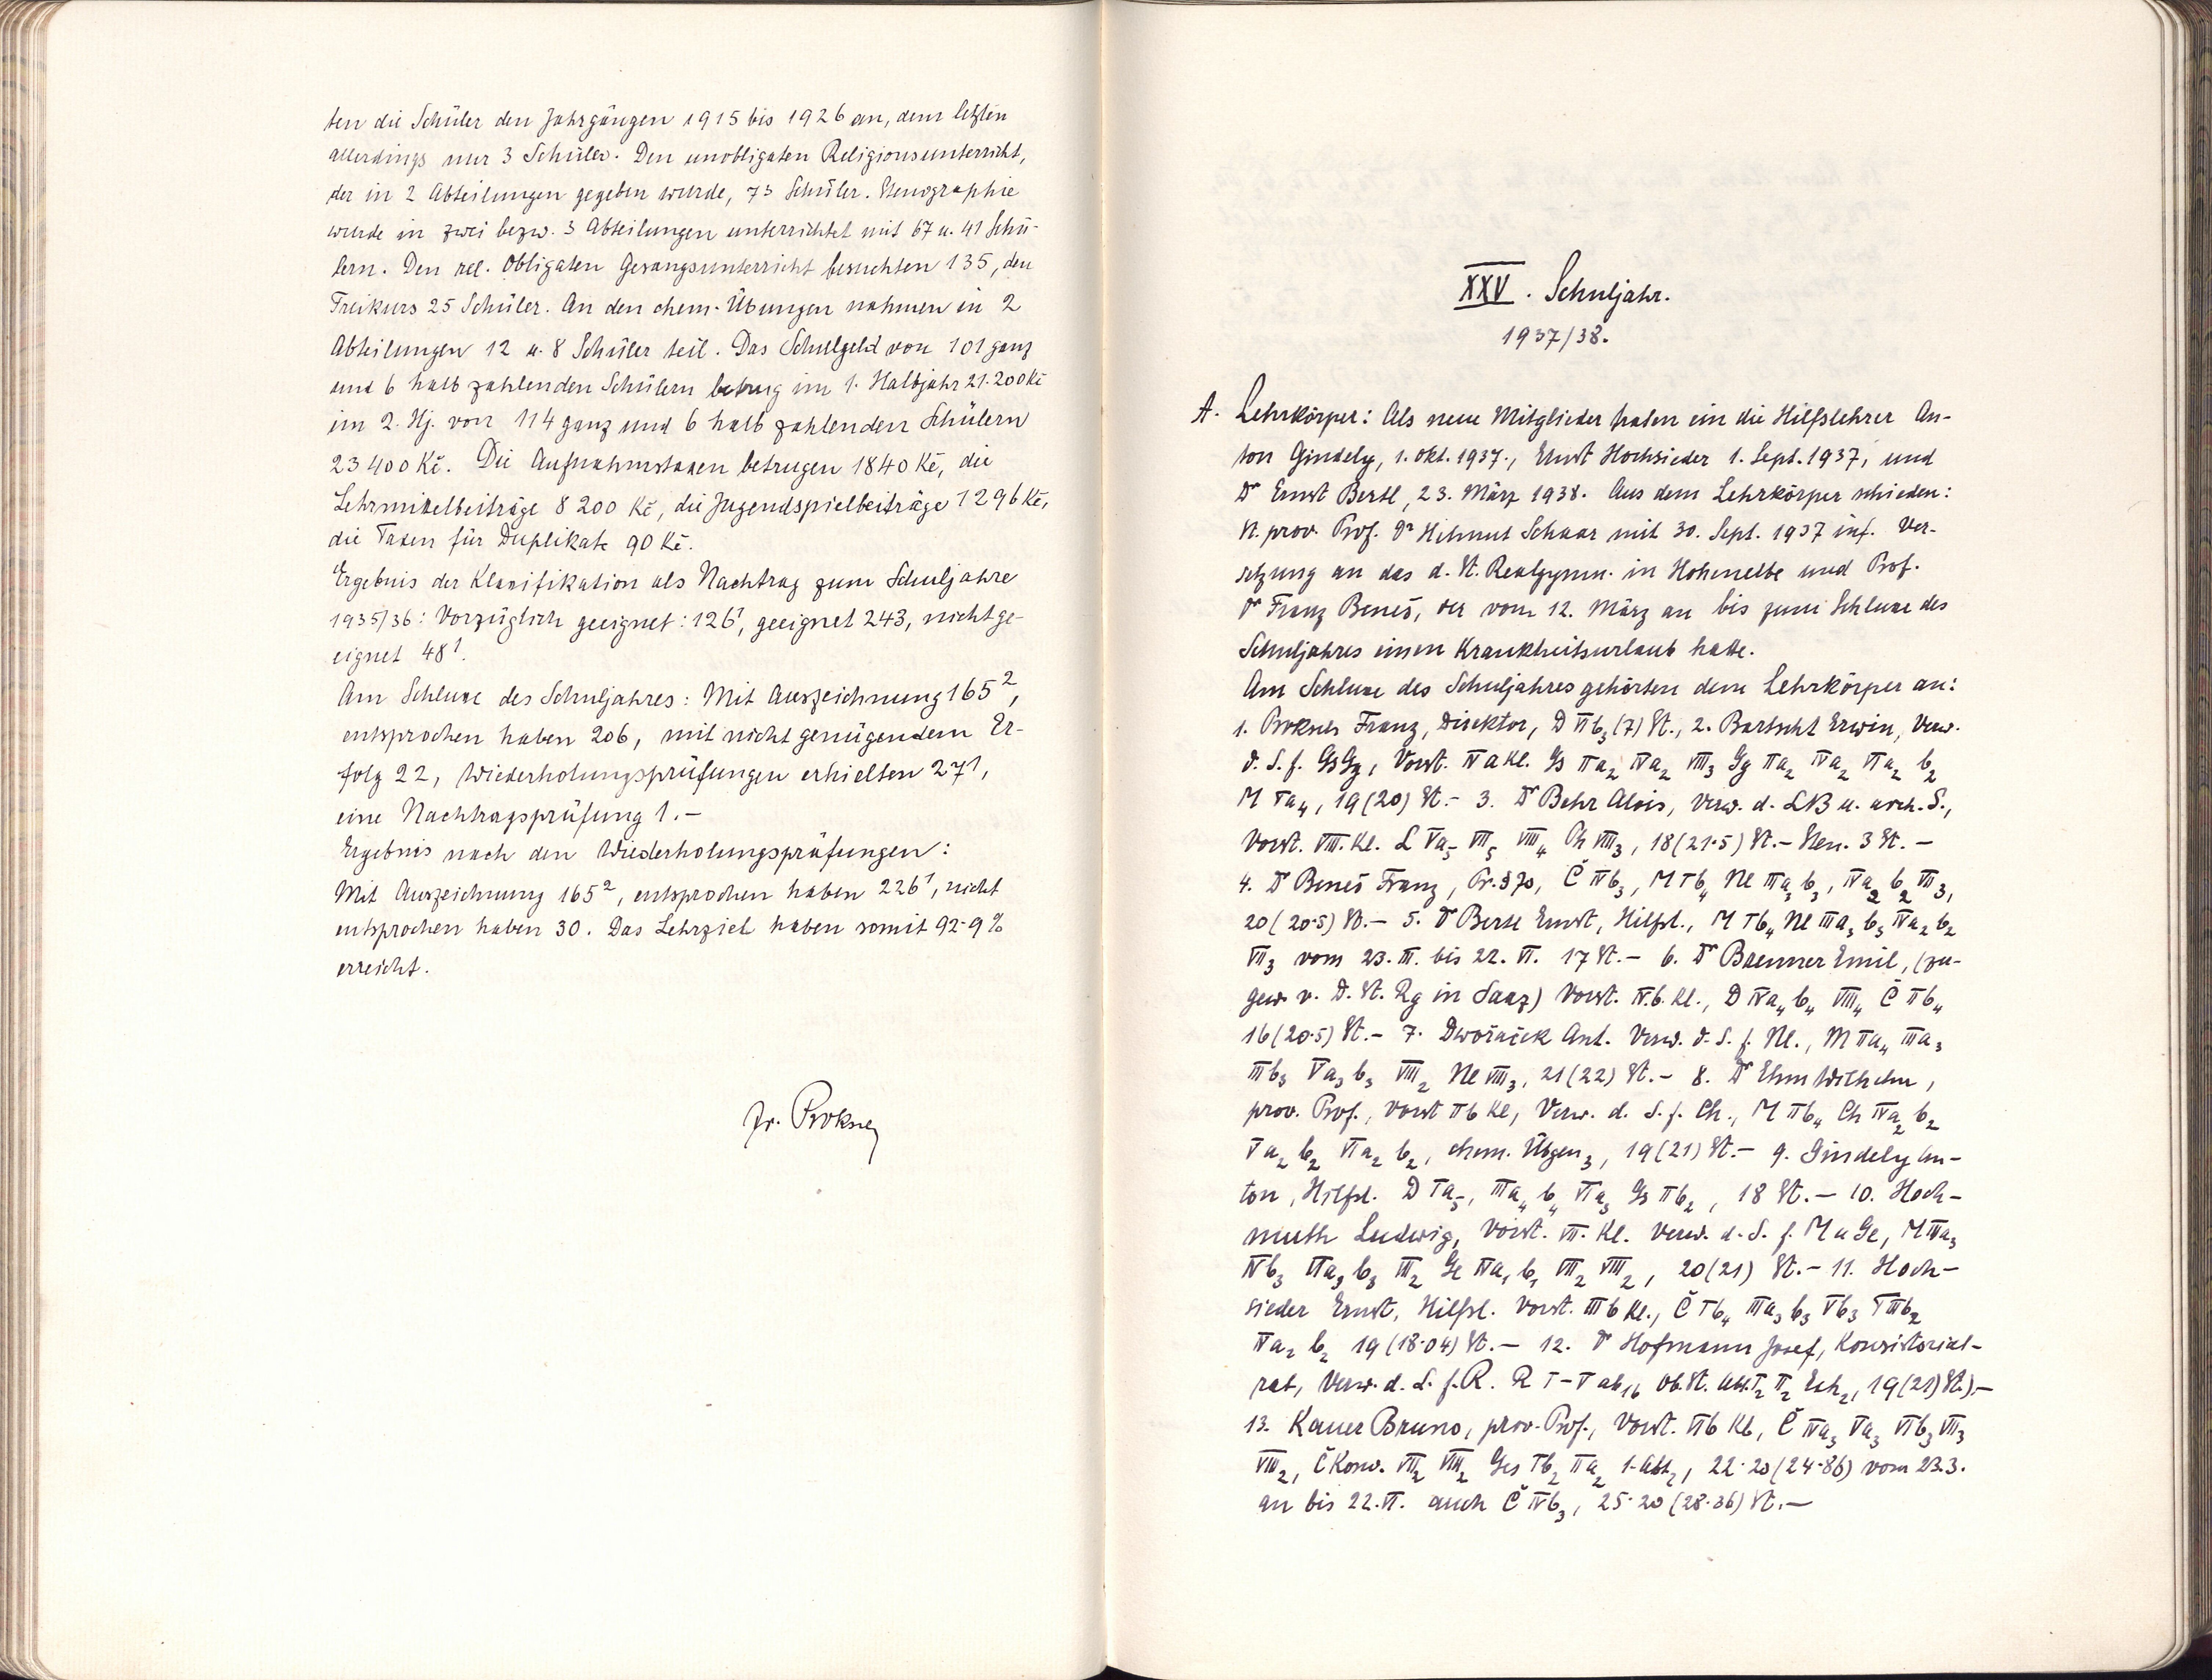 ten die Schüler den Jahrgängen 1915 bis 1926 an, dem letzten
allerdings nur 3 Schüler. Den unobligaten Religionsunterricht,
der in 2 Abteilungen gegeben wurde, 73 Schüler. Stenographie
wurde in zwei bezw. 3 Abteilungen unterrichtet mit 67 u. 41 Schü-
lern. Den rel. obligaten Gesangsunterricht besuchten 135, den
Freikurs 25 Schüler. An den chem. Übungen nahmen in 2
Abteilungen 12 u. 8 Schüler teil. Das Schulgeld von 101 ganz
und 6 halb zahlenden Schülern betrug im 1. Halbjahr 21.200 Kč
im 2. Hj. von 114 ganz und 6 halb zahlenden Schülern
23 400 Kč. Die Aufnahmstaxen betrugen 1840 Kč, die
Lehrmittelbeiträge 8 200 Kč, die Jugendspielbeiträge 1296 Kč,
die Taxen für Duplikate 90 Kč.
Ergebnis der Klassifikation als Nachtrag zum Schuljahre
1935/36: Vorzüglich geeignet: 126¹, geeignet 243, nicht ge-
eignet 48¹.
Am Schlusse des Schuljahres: Mit Auszeichnung 165²,
entsprochen haben 206, mit nicht genügendem Er-
folg 22, Wiederholungsprüfungen erhielten 27¹,
eine Nachtragsprüfung 1.-
Ergebnis nach den Wiederholungsprüfungen:
Mit Auszeichnung 165², entsprochen haben 226¹, nicht
entsprochen haben 30. Das Lehrziel haben somit 92·9 %
erreicht.
Fr. Proksch
XXV. Schuljahr.
1937/38.
A. Lehrkörper: Als neue Mitglieder traten ein die Hilfslehrer An-
ton Gindely, 1. Okt. 1937., Ernst Hochsieder 1. Sept. 1937, und
Dr Ernst Bertl, 23. März 1938. Aus dem Lehrkörper schieden:
St. prov. Prof. Dr Helmut Schaar mit 30. Sept. 1937 inf. Ver-
setzung an das d. St. Realgymn. in Hohenelbe und Prof.
Dr Franz Beneš, der vom 12. März an bis zum Schlusse des
Schuljahres einen Krankheitsurlaub hatte.
Am Schlusse des Schuljahres gehörten dem Lehrkörper an:
1. Proksch Franz, Direktor, D IIb₃ (7) St., 2. Bartscht Erwin, Verw.
d. S. f. GsGg, Vorst. IVa Kl. Gs IIa₂ IVa₂ VIII₃ Gg IIa₂ IVa₂ VIa₂ b₂
M Ia₄, 19 (20) St.- 3. Dr Behr Alois, Verw. d. LB u. arch. S.,
Vorst. VIII. Kl. L Va₅ VII₅ VIII₄ Ph VIII₃, 18 (21·5) St.- Sten. 3 St. -
4. Dr Beneš Franz, Pr. § 70, Č IVb₃, M Ib₄ Nl IIIa₃ b₃, IVa₂ b₂ VII₃,
20 (20·5) St.- 5. Dr Bertl Ernst, Hilfsl., M Ib₄ Nl IIIa₃ b₃ IVa₂ b₂
VII₃ vom 23. III. bis 22. VI. 17 St.- 6. Dr Brenner Emil, (zu-
gew. v. D. St. Rg in Saaz) Vorst. IV.b. Kl., D IVa₄ b₄ VIII₄ Č IIb₄
16 (20·5) St.- 7. Dwořaček Ant. Verw. d. S. f. Nl., M IIa₄ IIIa₃
IIIb₃ Va₃ b₃ VIII₂ Nl VIII₃, 21 (22) St.- 8. Dr Ehm Wilhelm,
prov. Prof., Vorst IIb Kl, Verw. d. S. f. Ch., M IIb₄ Ch IVa₂ b₂
Va₂ b₂ VIa₂ b₂, chem. Übgen₃, 19 (21) St.- 9. Gindely An-
ton, Hilfsl. D Ia₅, IIIa₄ b₄ VIa₃ Gs IIb₂, 18 St.- 10. Hoch-
muth Ludwig, Vorst. VII. Kl. Verw. d. S. f. M u Ge, M IVa₃
IVb₃ VIa₃ b₃ VII₂ Ge IVa₁ b₁ VII₂ VIII₂, 20 (21) St.- 11. Hoch-
sieder Ernst, Hilfsl. Vorst. IIIb Kl., Č Ib₄ IIIa₃ b₃ Vb₃ T IIIb₂
IVa₂ b₂ 19 (18·04) St.- 12. Dr Hofmann Josef, Konsistorial-
rat, Verw. d. S. f. R. R I-V ab₁₆ Ob. St. Abt. I₂ II₂ Exh₂, 19 (21) St.).-
13. Kauer Bruno, prov. Prof., Vorst. VIb Kl, Č IVa₃ Va₃ VIb₃ VII₃
VIII₂, Č Konv. VII₂ VIII₂ Ges Ib₂ IIa₂ 1. Abt₂, 22·20 (24·86) vom 23.3.
an bis 22. VI. auch Č IVb₃, 25·20 (28·36) St.-